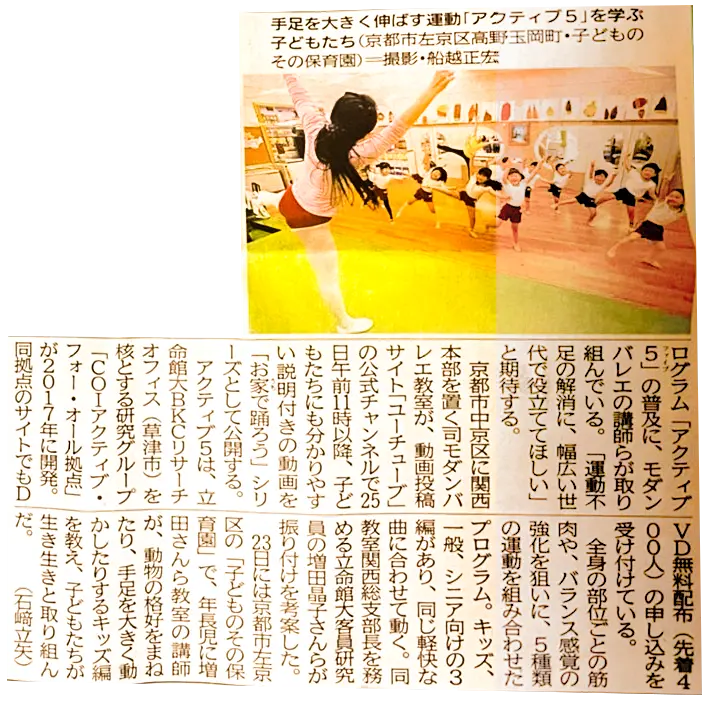 手足を大きく伸ばす運動「アクティブ5」を学ぶ
子どもたち(京都市左京区高野玉岡町・子どもの
その保育園)=撮影・船越正宏
ログラム「アクティブ
5」の普及に、モダン
ファイブ
バレエの講師らが取り
組んでいる。「運動不
足の解消に、幅広い世
代で役立ててほしい」
と期待する。
京都市中京区に関西
本部を置く司モダンバ
レエ教室が、動画投稿
サイト「ユーチューブ」
の公式チャンネルで25
日午前11時以降、子ど
もたちにも分かりやす
い説明付きの動画を
「お家で踊ろう」シリ
ーズとして公開する。
アクティブ5は、立
命館大BKCリサーチ
オフィス(草津市)を
核とする研究グループ
「COIアクティブ・
フォー・オール拠点」
が2017年に開発。
同拠点のサイトでもD
VD無料配布(先着4
00人)の申し込みを
受け付けている。
全身の部位ごとの筋
肉や、バランス感覚の
強化を狙いに、5種類
の運動を組み合わせた
プログラム。キッズ、
一般、シニア向けの3
編があり、同じ軽快な
曲に合わせて動く。同
教室関西総支部長を務
める立命館大客員研究
員の増田晶子さんらが
振り付けを考案した。
23日には京都市左京
区の「子どものその保
育園」で、年長児に増
田さんら教室の講師
が、動物の格好をまね
たり、手足を大きく動
かしたりするキッズ編
を教え、子どもたちが
生き生きと取り組ん
だ。(石﨑立矢)